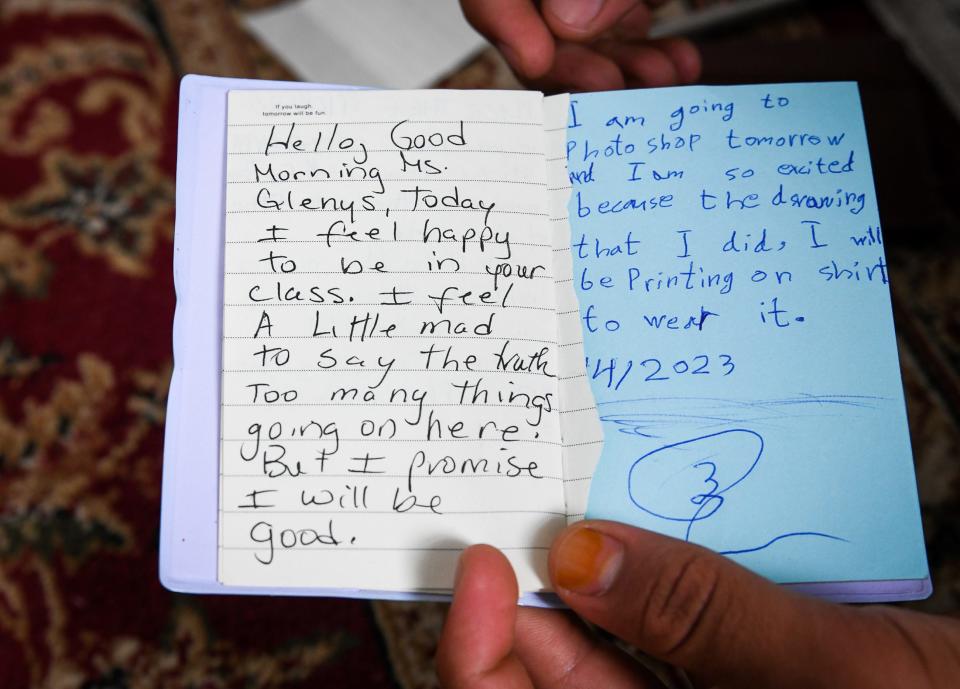 If you laugh,
tomorrow will be fun.
Hello, Good
Morning Ms.
Glenys, Today
I feel happy
to be in your
class. I feel
A Little mad
to say the truth
Too many things
going on here.
But I promise
I will be
good.
I am going to
Photo shop tomorrow
and I am so excited
because the drawing
that I did, I will
be Printing on shirt
to wear it.
4/2023
3